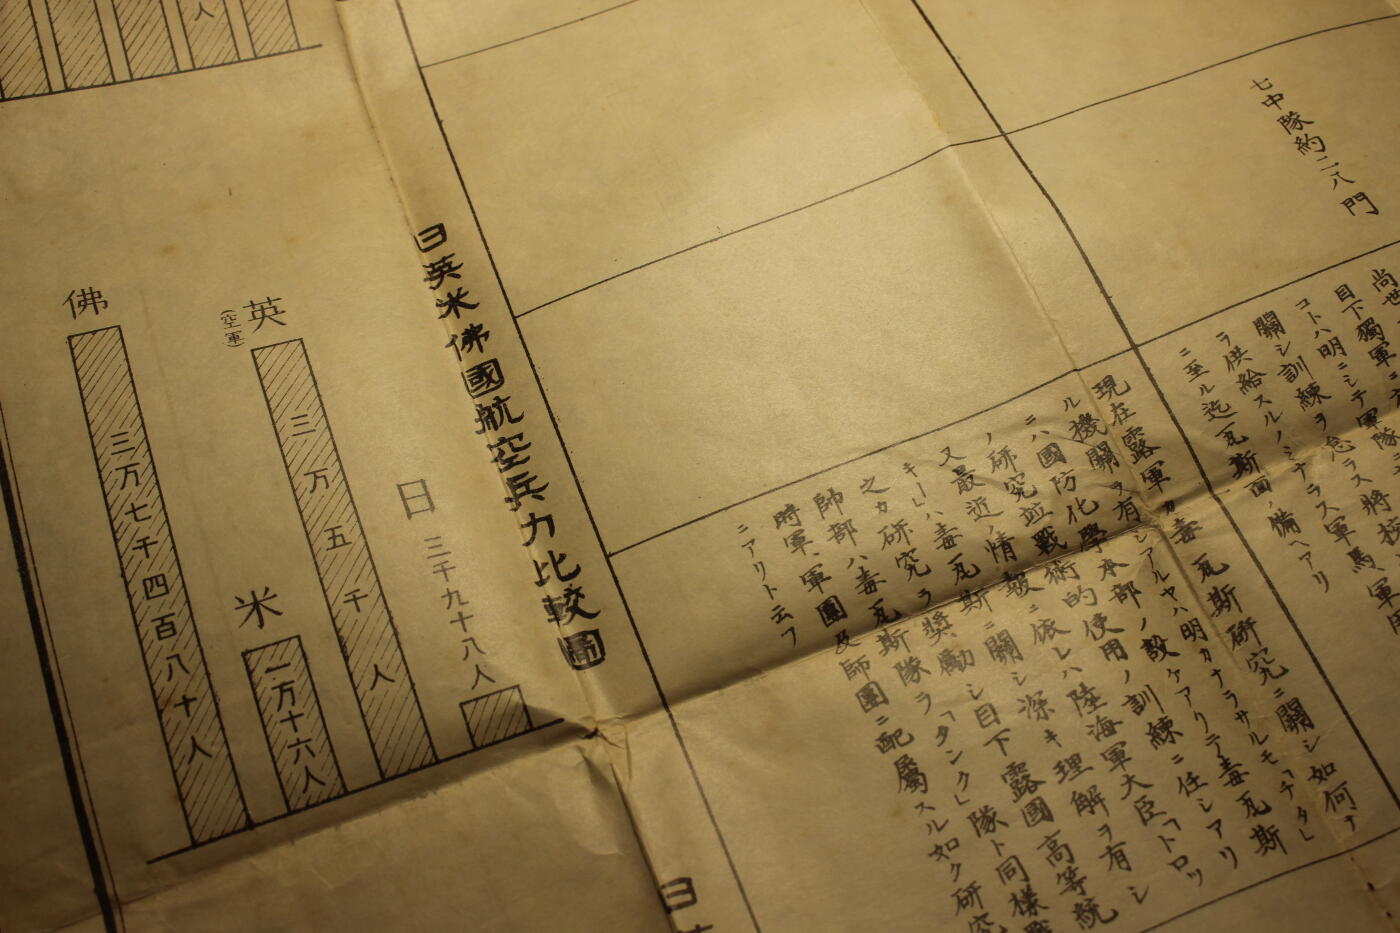 七中隊約二八門
尚
目下獨軍ニ
コトハ明ニシテ軍隊ニ
關シ訓練ヲ急ラス將校、軍
ラ供給スルノミナラス軍馬、軍
ニ至ル迄瓦斯面ノ備ヘアリ
現在露軍カ毒瓦斯研究ニ關シ如何ナ
ル機關ヲ有シアルヤハ明カナラサルモ「チタ」
ニハ國防化學本部ノ設ケアリテ毒瓦斯
ノ研究竝戰術的使用ノ訓練ニ任シアリ
又最近ノ情報ニ依レハ陸海軍大臣「トロツ
キー」ハ毒瓦斯ニ關シ深キ理解ヲ有シ
之カ研究ヲ獎勵シ目下露國高等統
帥部ハ毒瓦斯隊ヲ「タンク」隊ト同樣戰
時軍、軍團及師團ニ配屬スル如ク研究
ニアリト云フ
日英米佛國航空兵力比較圖
日
三千九十八人
英
(空軍)
三万五千人
米
一万十六人
佛
三万七千四百八十人
人
日